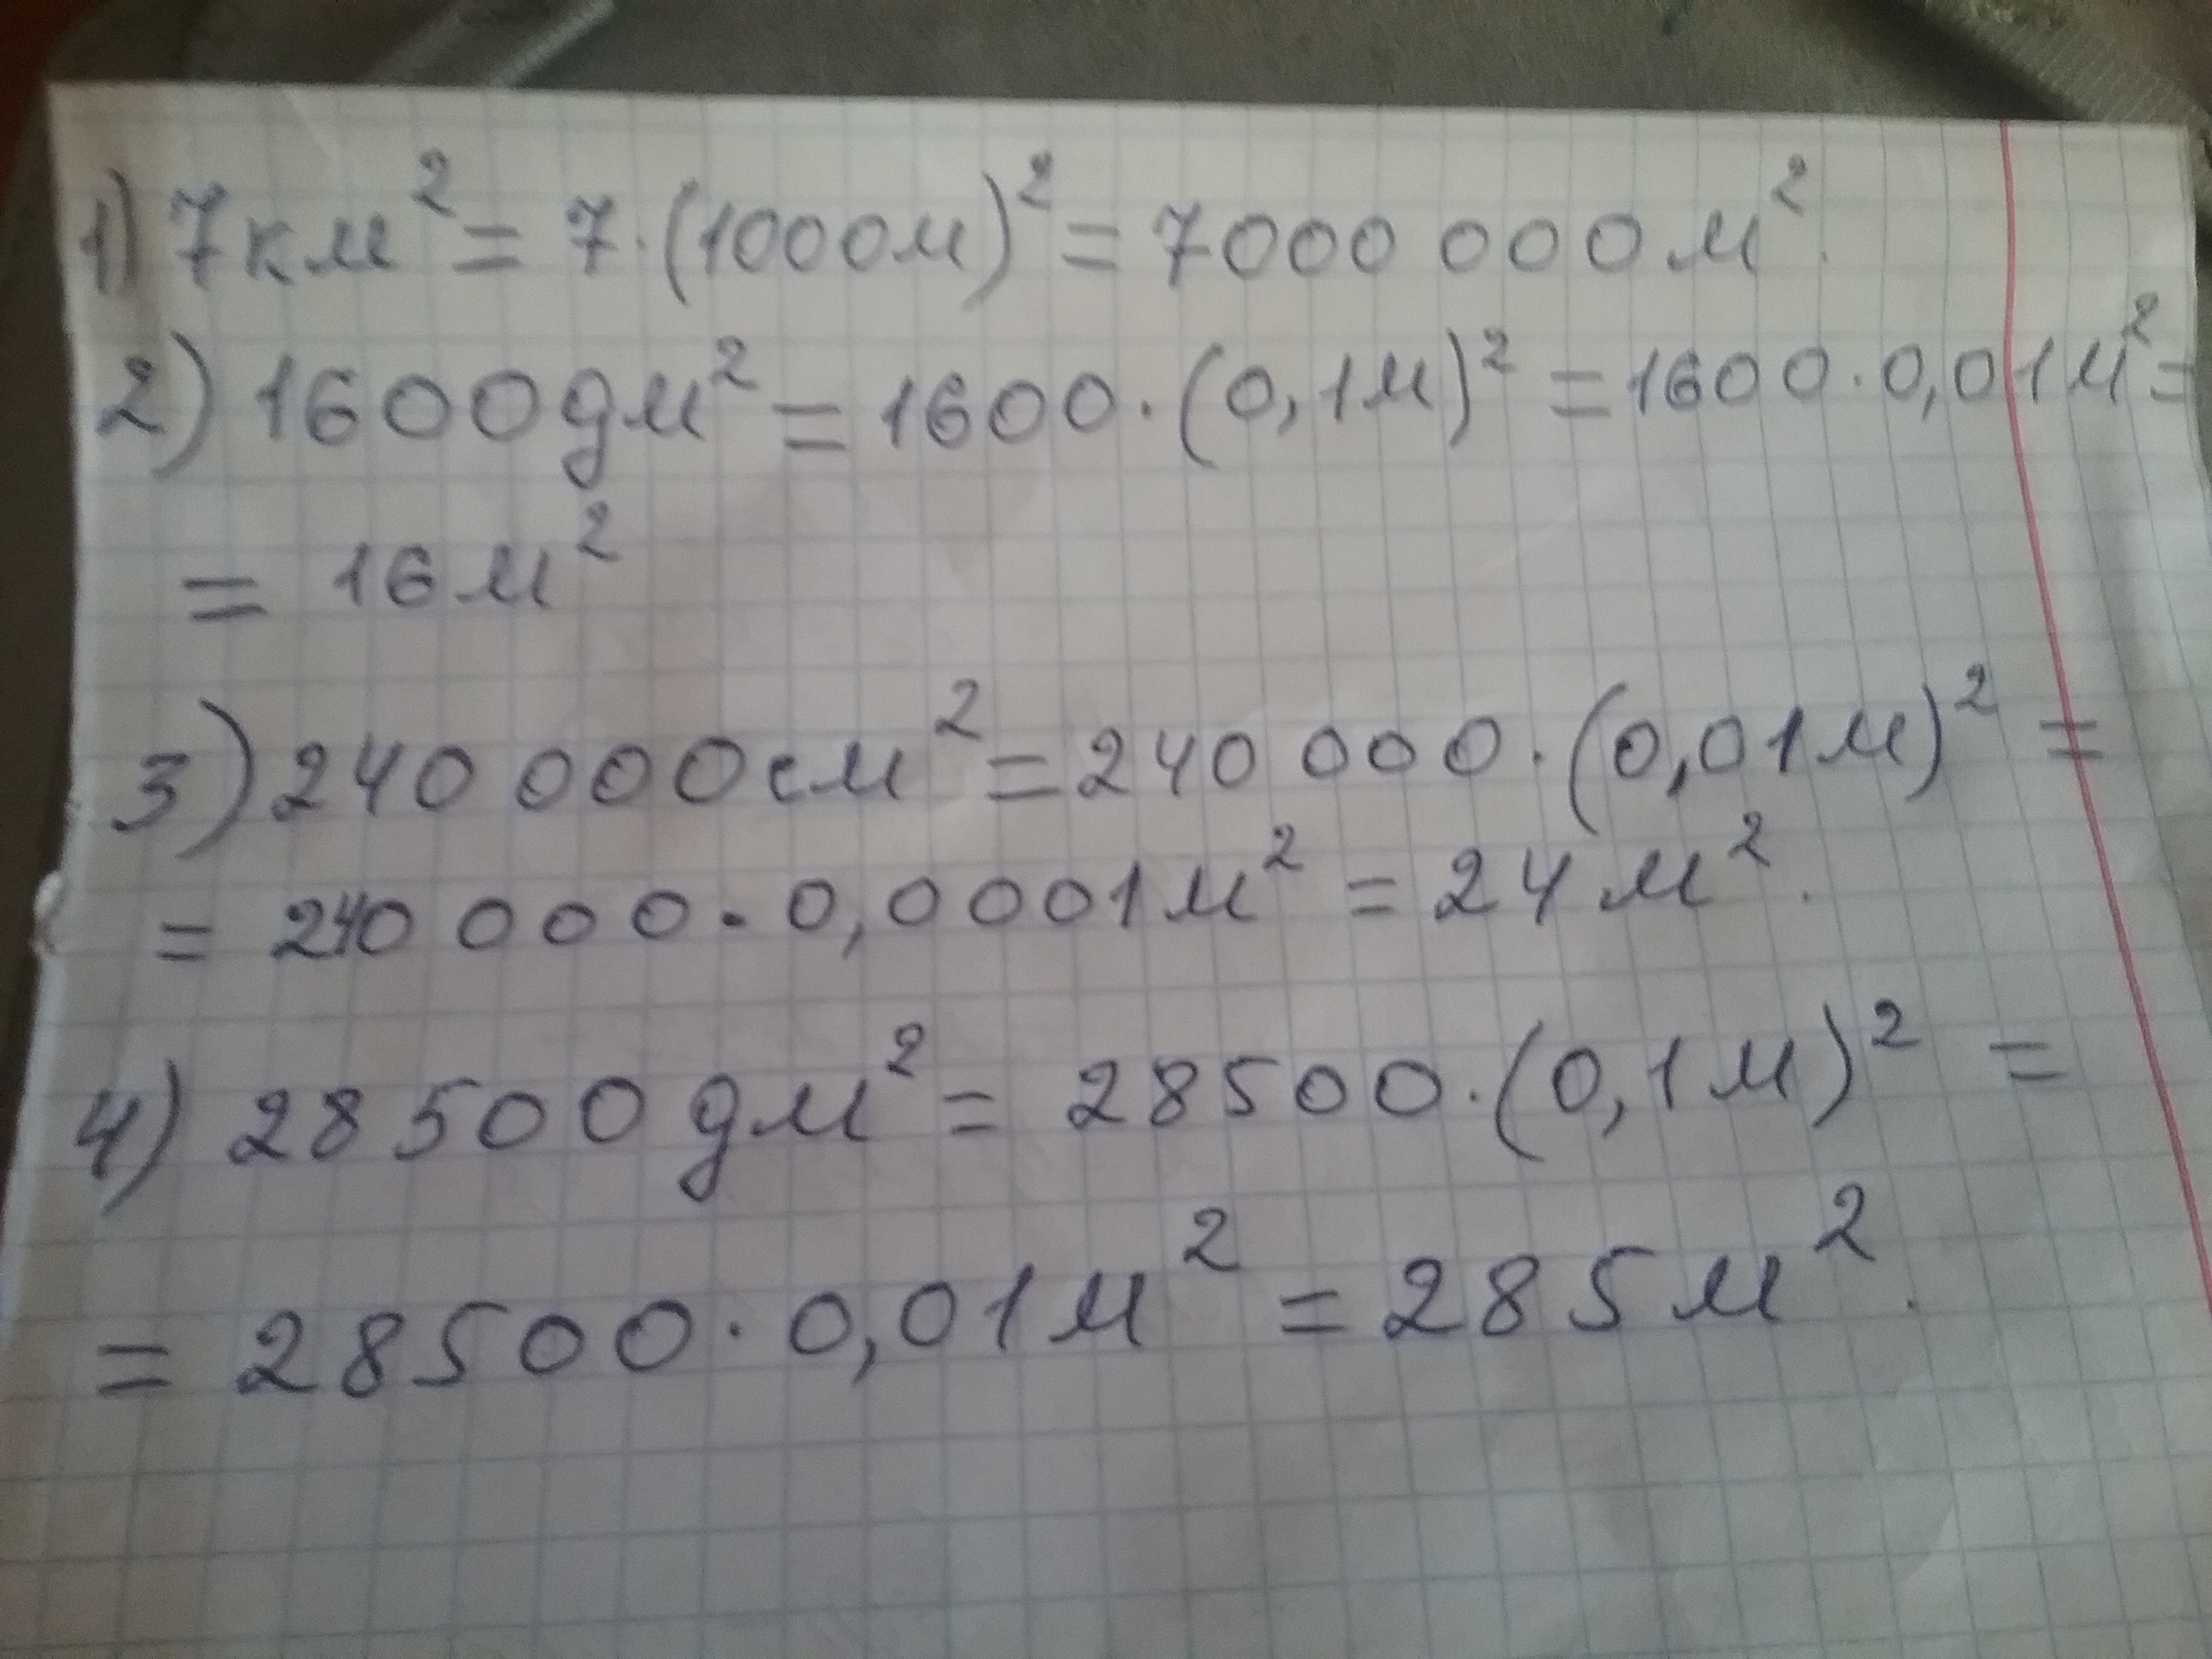 1) 7км² = 7·(1000м)² = 7000 000 м².
2) 1600дм² = 1600·(0,1м)² = 1600·0,01м² =
= 16м²
3) 240 000см² = 240 000·(0,01м)² =
= 240 000·0,0001м² = 24м².
4) 28500дм² = 28500·(0,1м)² =
= 28500·0,01м² = 285м².